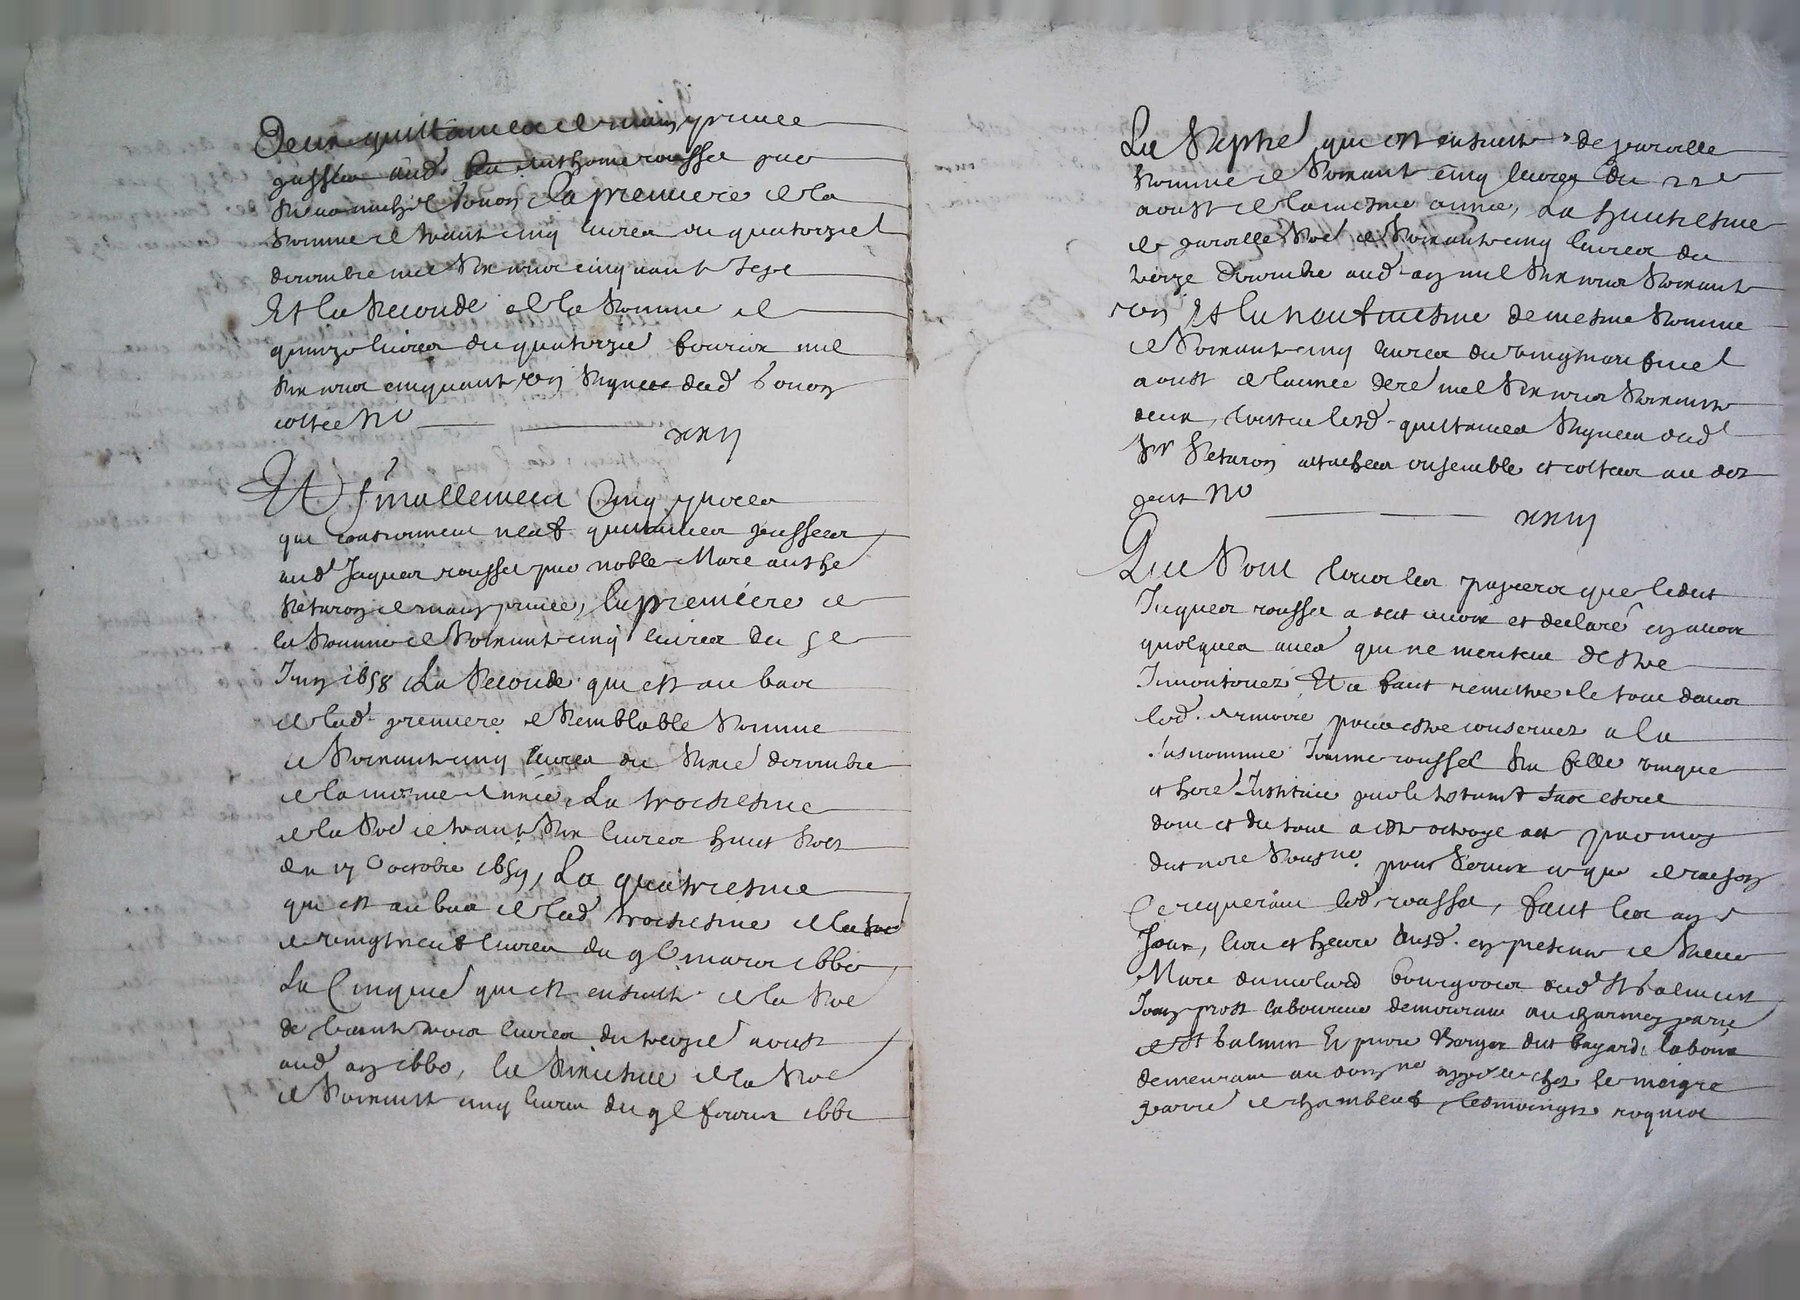 Deux quittances de main privee
passées aud. feu Anthoine roussel par
michel bonon la premiere de la
somme de trante cinq livres du quatorzie
decembre mil six cens cinquante sept
Et la Seconde de la Somme de
quinze livres du quatorzie feburier mil
six cens cinquante neuf Signees dud bonon
cottee No xxij
Et finallement Cinq pieces
qui contiennent neuf quittances passees
aud Jaques roussel par noble Marc anthe
de main privee, la premiere de
la Somme de Soixante cinq livres du 5e
Juin 1658 La Seconde qui est au bas
de lad. premiere de Semblable Somme
de Soixante cinq livres du Sixie decembre
de la mesme Année, La troisiesme
de la So. de trante Six livres huict Solz
du 17 octobre 1659, La quatriesme
qui est au bas de lad troisiesme de la So.
de vingt neuf livres du 9e mars 1660
La Cinquie qui est ensuitte de la Soe
de trante trois livres du treizie aoust
aud an 1660, la Sixiesme de la Soe
de Soixante cinq livres du 9e fevrier 1661
La Septie qui est ensuitte de pareille
Somme de Soixante cinq livres du 22e
aoust de la mesme annee, La huictiesme
de pareille Soe de Soixante cinq livres du
treize decembre aud. an mil Six cens Soixante
un Et la neufviesme de mesme Somme
de Soixante cinq livres du vingt neufvie
aoust de l'annee de mil Six cens Soixante
deux, toutes lesd. quittances Signees dud
Sr attachees ensemble et cottees au dos
No xxiij
Qui Sont tous les papiers que ledict
Jaques roussel a dict avoir et declaré en avoir
quelques unes qui ne meritent destre
Inventoriez Et a faict remettre le tout dans
led. Armoire pour estre conservez a la
Susnommee Jeanne roussel Sa fille unique
et here
dont et du tout a este octroyé acte par moy
dict nore Soussne pour Servir ce que de raison
Ce requerant led roussel, faict les an
Jour, lieu et heure Susd. en presence de Sieur
Marc dumolard bourgeois dud St balmont
Jean prost laboureur demeurant au charmey parre
de St balmont Et pierre berger dict bayard, labour
demeurant au chez le maigre
parre de chambeuf, tesmoingts requis